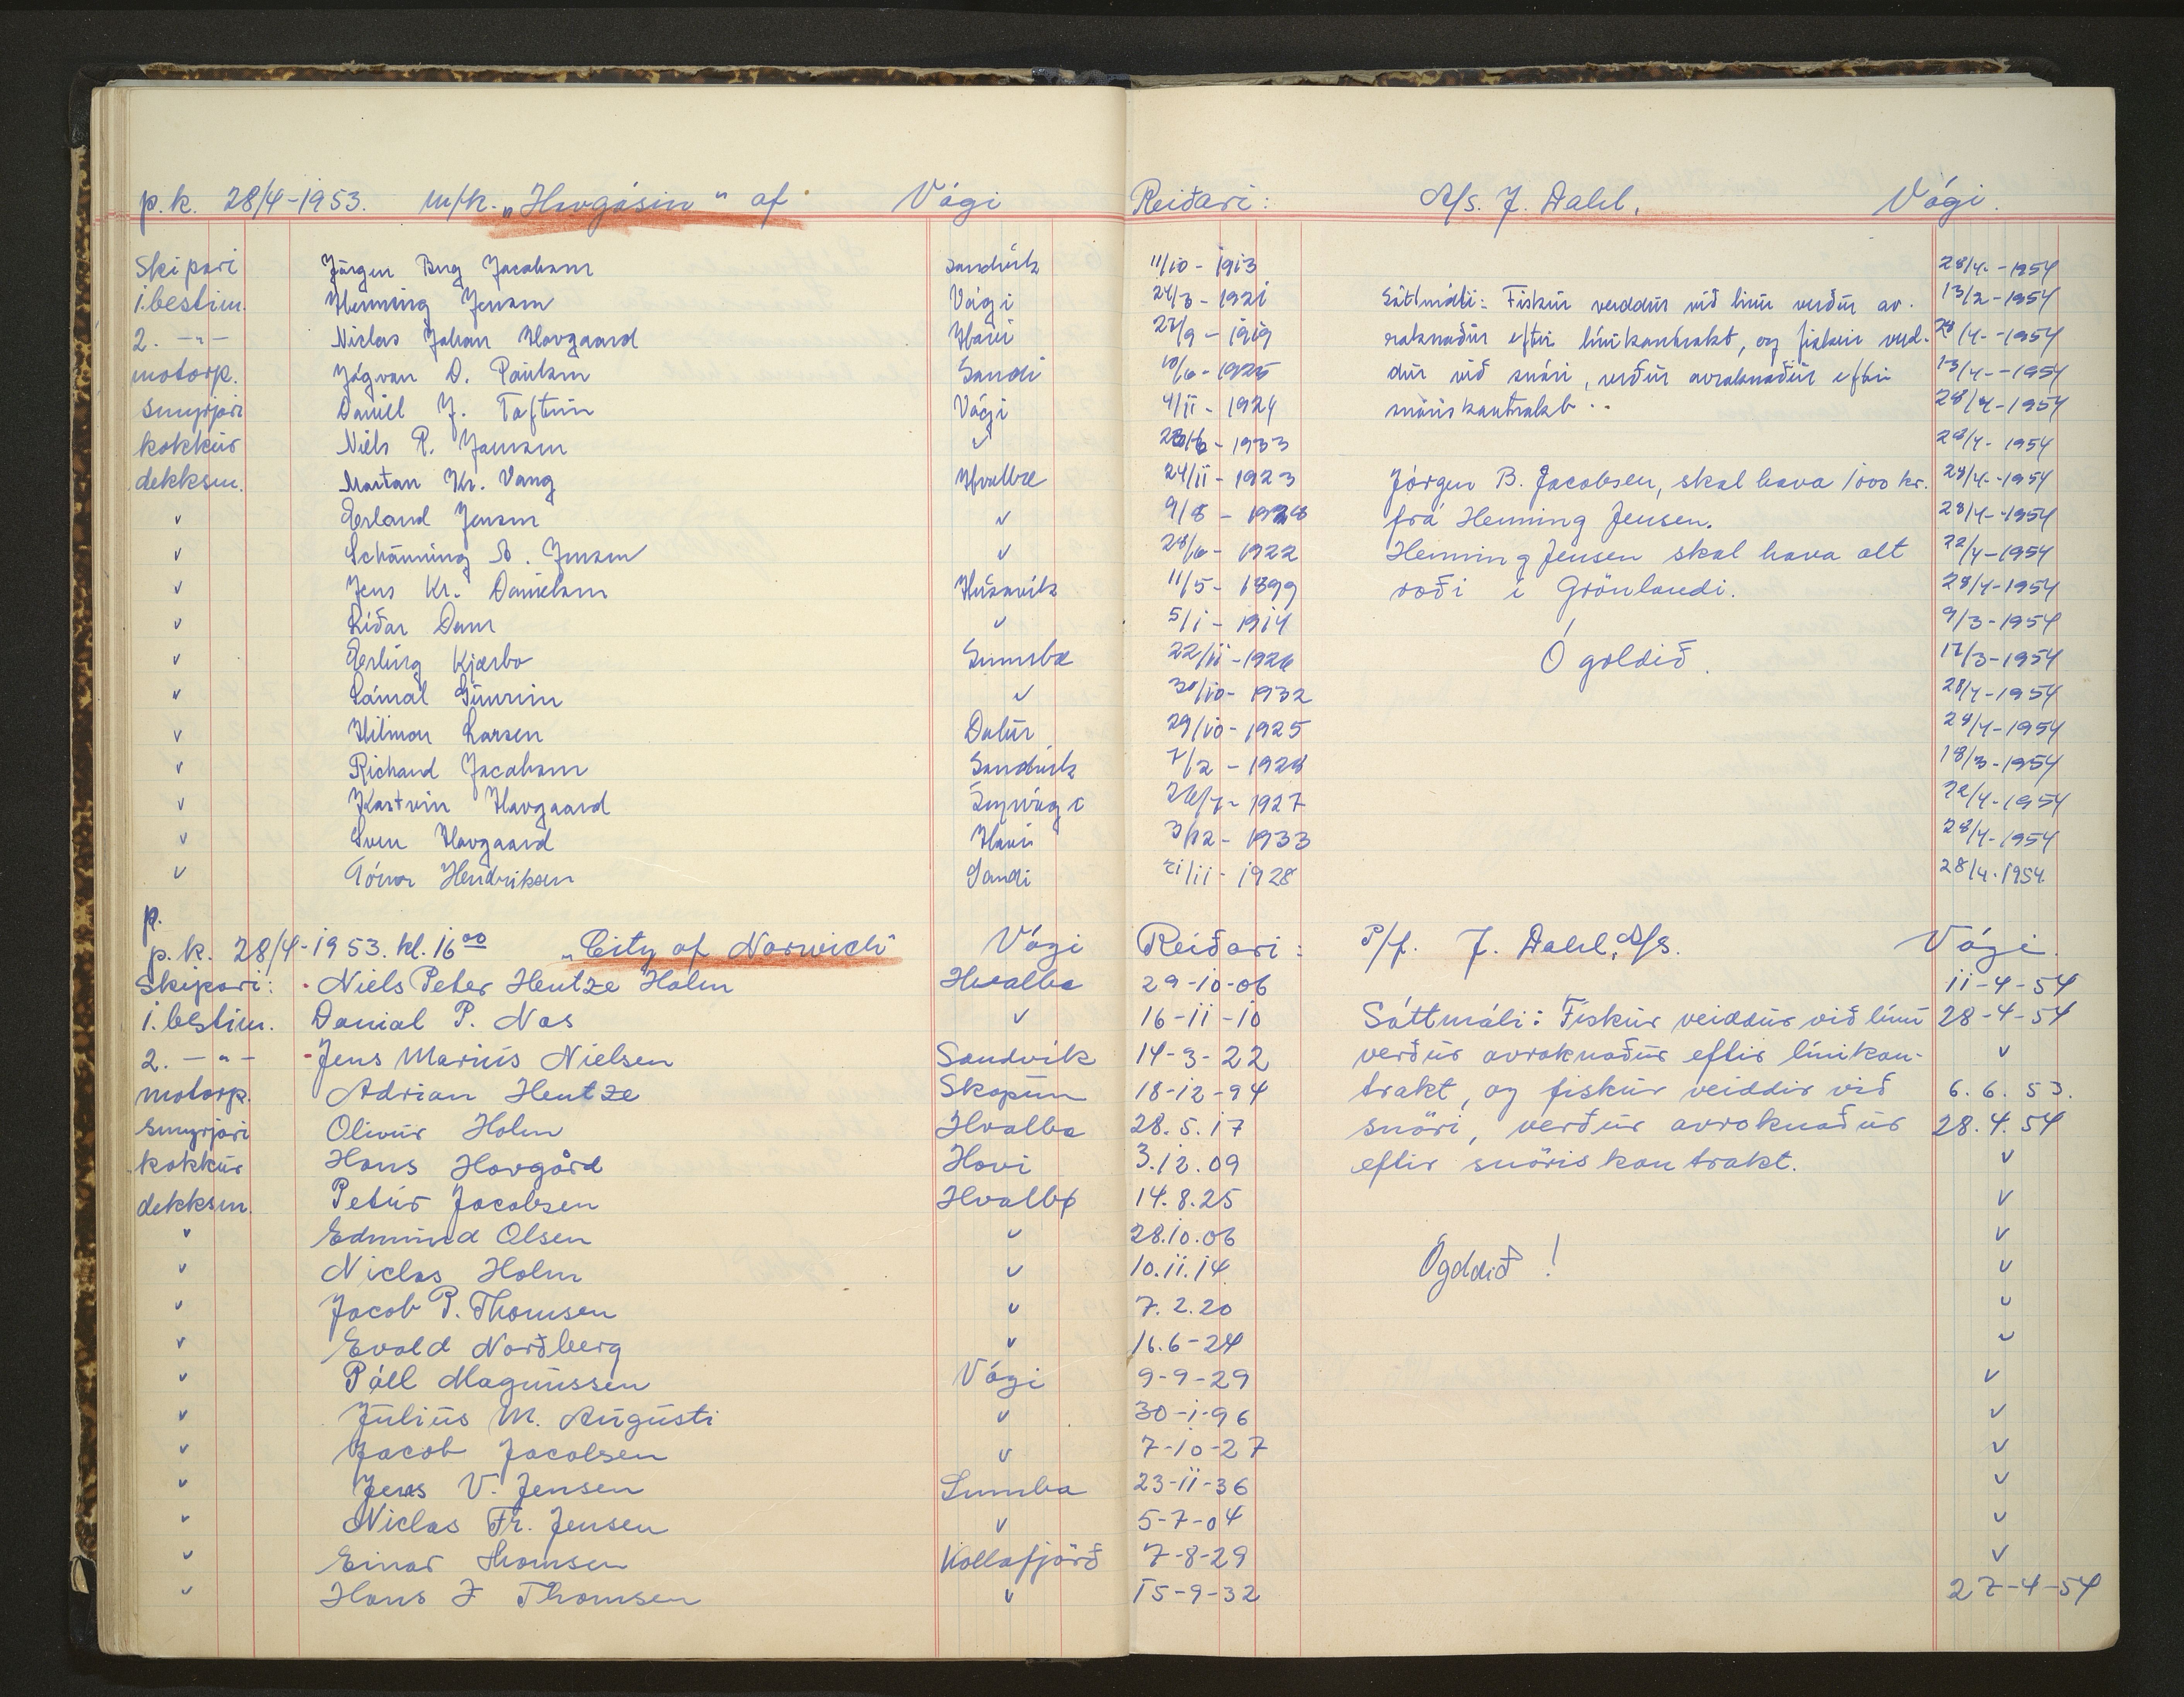 p.k. 28/4-1953. m/k. „Havgásin" af Vági Reiðari: A/s. J. Dahl. Vági.
Skipari Jörgen Berg Jacobsen Sandvík 11/10 - 1913 28/4. - 1954
1. bestm. Henning Jensen Vági 24/3 - 1921 Sáttmáli: Fiskur veiddur við línu verður av- 13/2 - 1954
2. -"- Niclas Johan Hovgaard Hovi 27/9 - 1919 roknaður eftir línukontrakt, og fiskur veid- 28/4. - 1954
motorp. Jógvan D. Poulsen Sandi 10/6 - 1925 dur við snöri, verður avroknaður eftir 13/4. - 1954
smyrjari Daniel J. Toftum Vági 4/11 - 1924 snöriskontrakt. 28/4 - 1954
kokkur Niels P. Joensen v 1933 28/4. - 1954
dekksm. Martan Kr. Vang Hvalbæ 24/11 - 1923 Jörgen B. Jacobsen, skal hava 1000 kr. 28/4. - 1954
v Erland Jensen v 9/8 - frá Henning Jensen. 28/4 - 1954
v Schänning A. Jensen v 28/6 - 1922 Henning Jensen skal hava alt 22/4 - 1954
v Jens Kr. Danielsen Húsavík 11/5 - 1899 roði í Grönlandi. 28/4 - 1954
v Riðar Dam v 5/1 - 1914 9/3 - 1954
v Erling Kjærbo Sumba 22/11 - 1926 Ógoldið. 17/3 - 1954
v Sámal Gunnin v 30/10 - 1932 28/4 - 1954
v Hilmar Larsen Dalur 29/10 - 1925 28/4 - 1954
v Richard Jacobsen Sandvík 7/2 - 1928 18/3 - 1954
v Karstin Hovgaard 26/7 - 1927 22/4 - 1954
v Sven Hovgaard Hovi 3/12 - 1933 28/4 - 1954
v Tórur Hendriksen Sandi 21/11 - 1928 28/4 - 1954.
p.
p.k. 28/4 - 1953. kl. 16 00 „City of Norwich" Vági Reiðari: P/f. J. Dahl, A/s. Vági.
Skipari: Niels Peter Hentze Holm Hvalba 29-10-06 11-4-54
1. bestm. Danial P. Nas v 16-11-10 Sáttmáli: Fiskur veiddur við línu 28-4-54
2. -"- Jens Marius Nielsen Sandvík 14-3-22 verður avroknaður eftir línikon- v
motorp. Adrian Hentze Skopun 18-12-94 trakt, og fiskur veiddir við 6. 6. 53.
smyrjari Olivur Holm Hvalba 28.5.17 snöri, verður avroknaður 28.4.54
kokkur Hans Hovgård Hovi 3.12.09 eftir snöris kontrakt. v
dekksm. Petur Jacobsen Hvalba 14.8.25 v
v Edmund Olsen v 28.10.06 v
v Niclas Holm v 10.11.14. Ógoldið! v
v Jacob P. Thomsen v 7.2.20 v
v Evald Norðberg v 16.6-24 v
v Páll Magnussen Vági 9-9-29 v
v Julius M. Augusti v 30-1-96 v
v Jacob Jacobsen v 7-10-27 v
v Jens V. Jensen Sumba 23-11-36 v
v Niclas Fr. Jensen v 5-7-04 v
v Einar Thomsen Kollafjörð 7-8-29 v
v Hans J Thomsen v 15-9-32 27-4-54